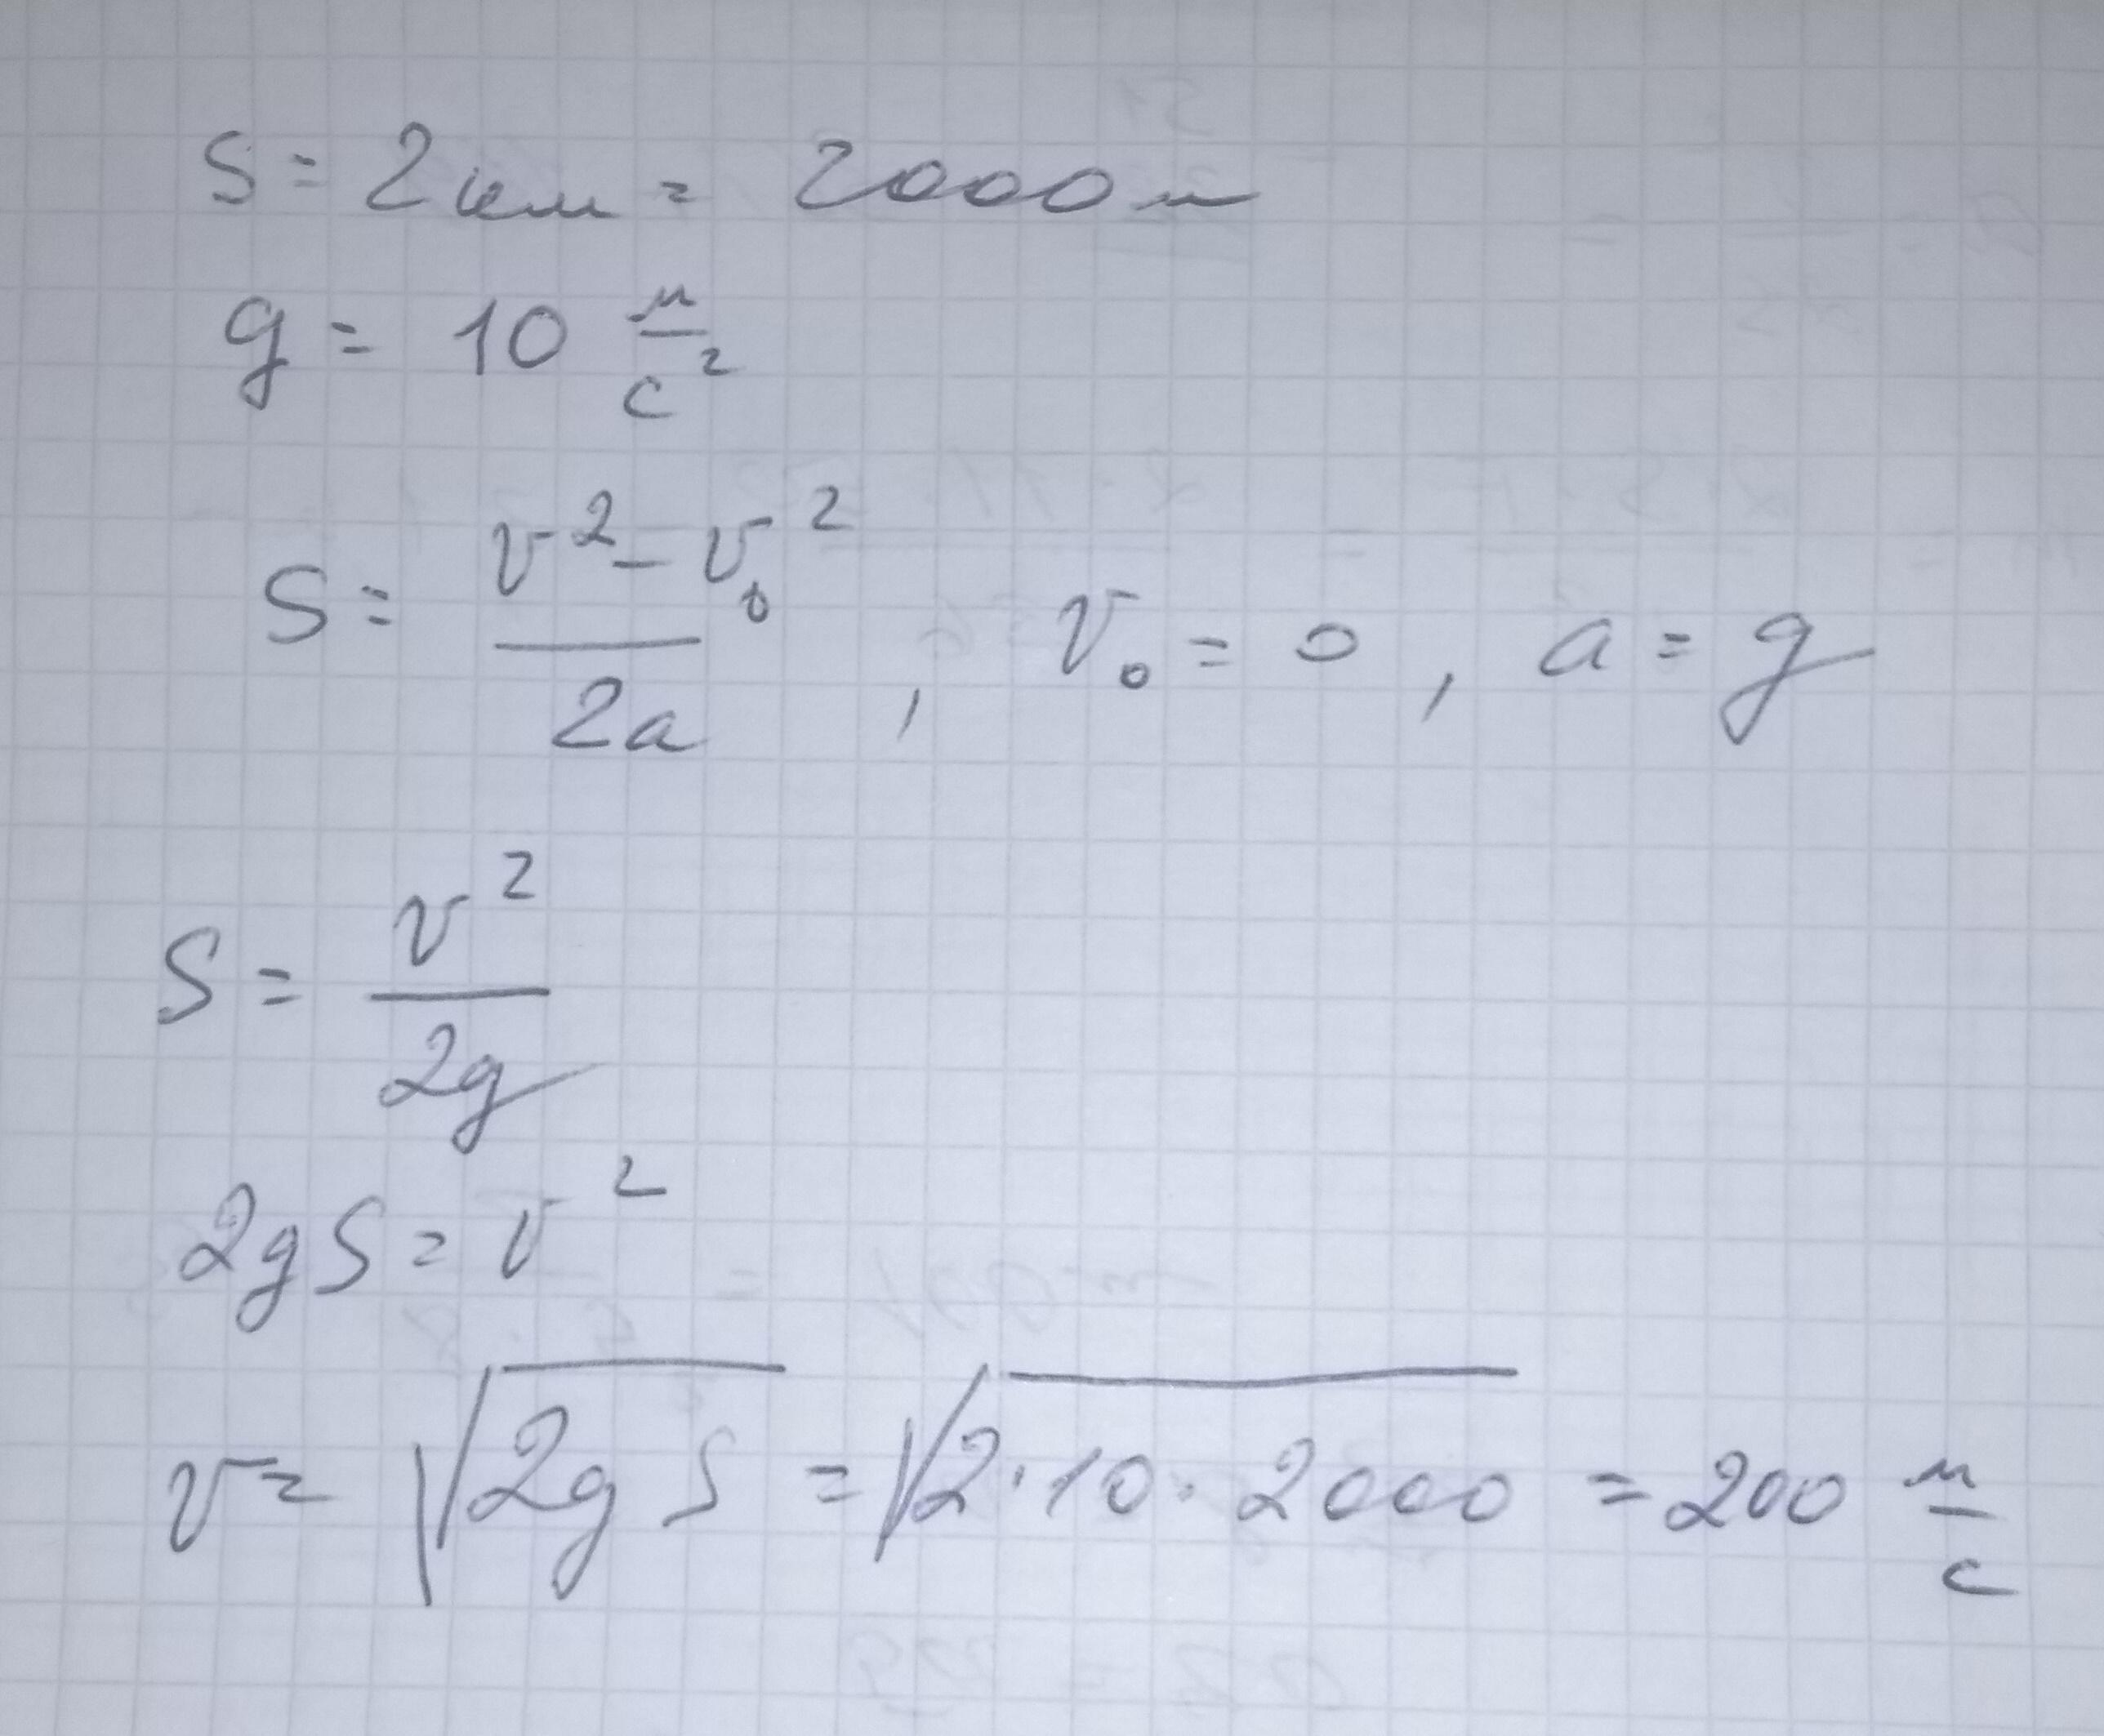 S = 2 км = 2000 м
g = 10 м/с²
S = (v² - v₀²)/2a , v₀ = 0 , a = g
S = v²/2g
2gS = v²
v = √(2gS) = √(2·10·2000) = 200 м/с